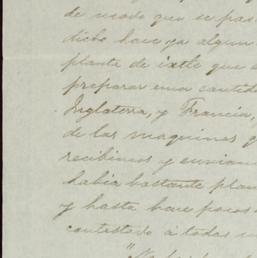 de modo que se pas
dicho hace ya algun
planta de ixtle que e
preparar una cantid
Inglaterra, y Francia,
de las maquinas q
recibimos y enviam
habia bastante plan
y hasta hace pocos
contestado á todas
"No